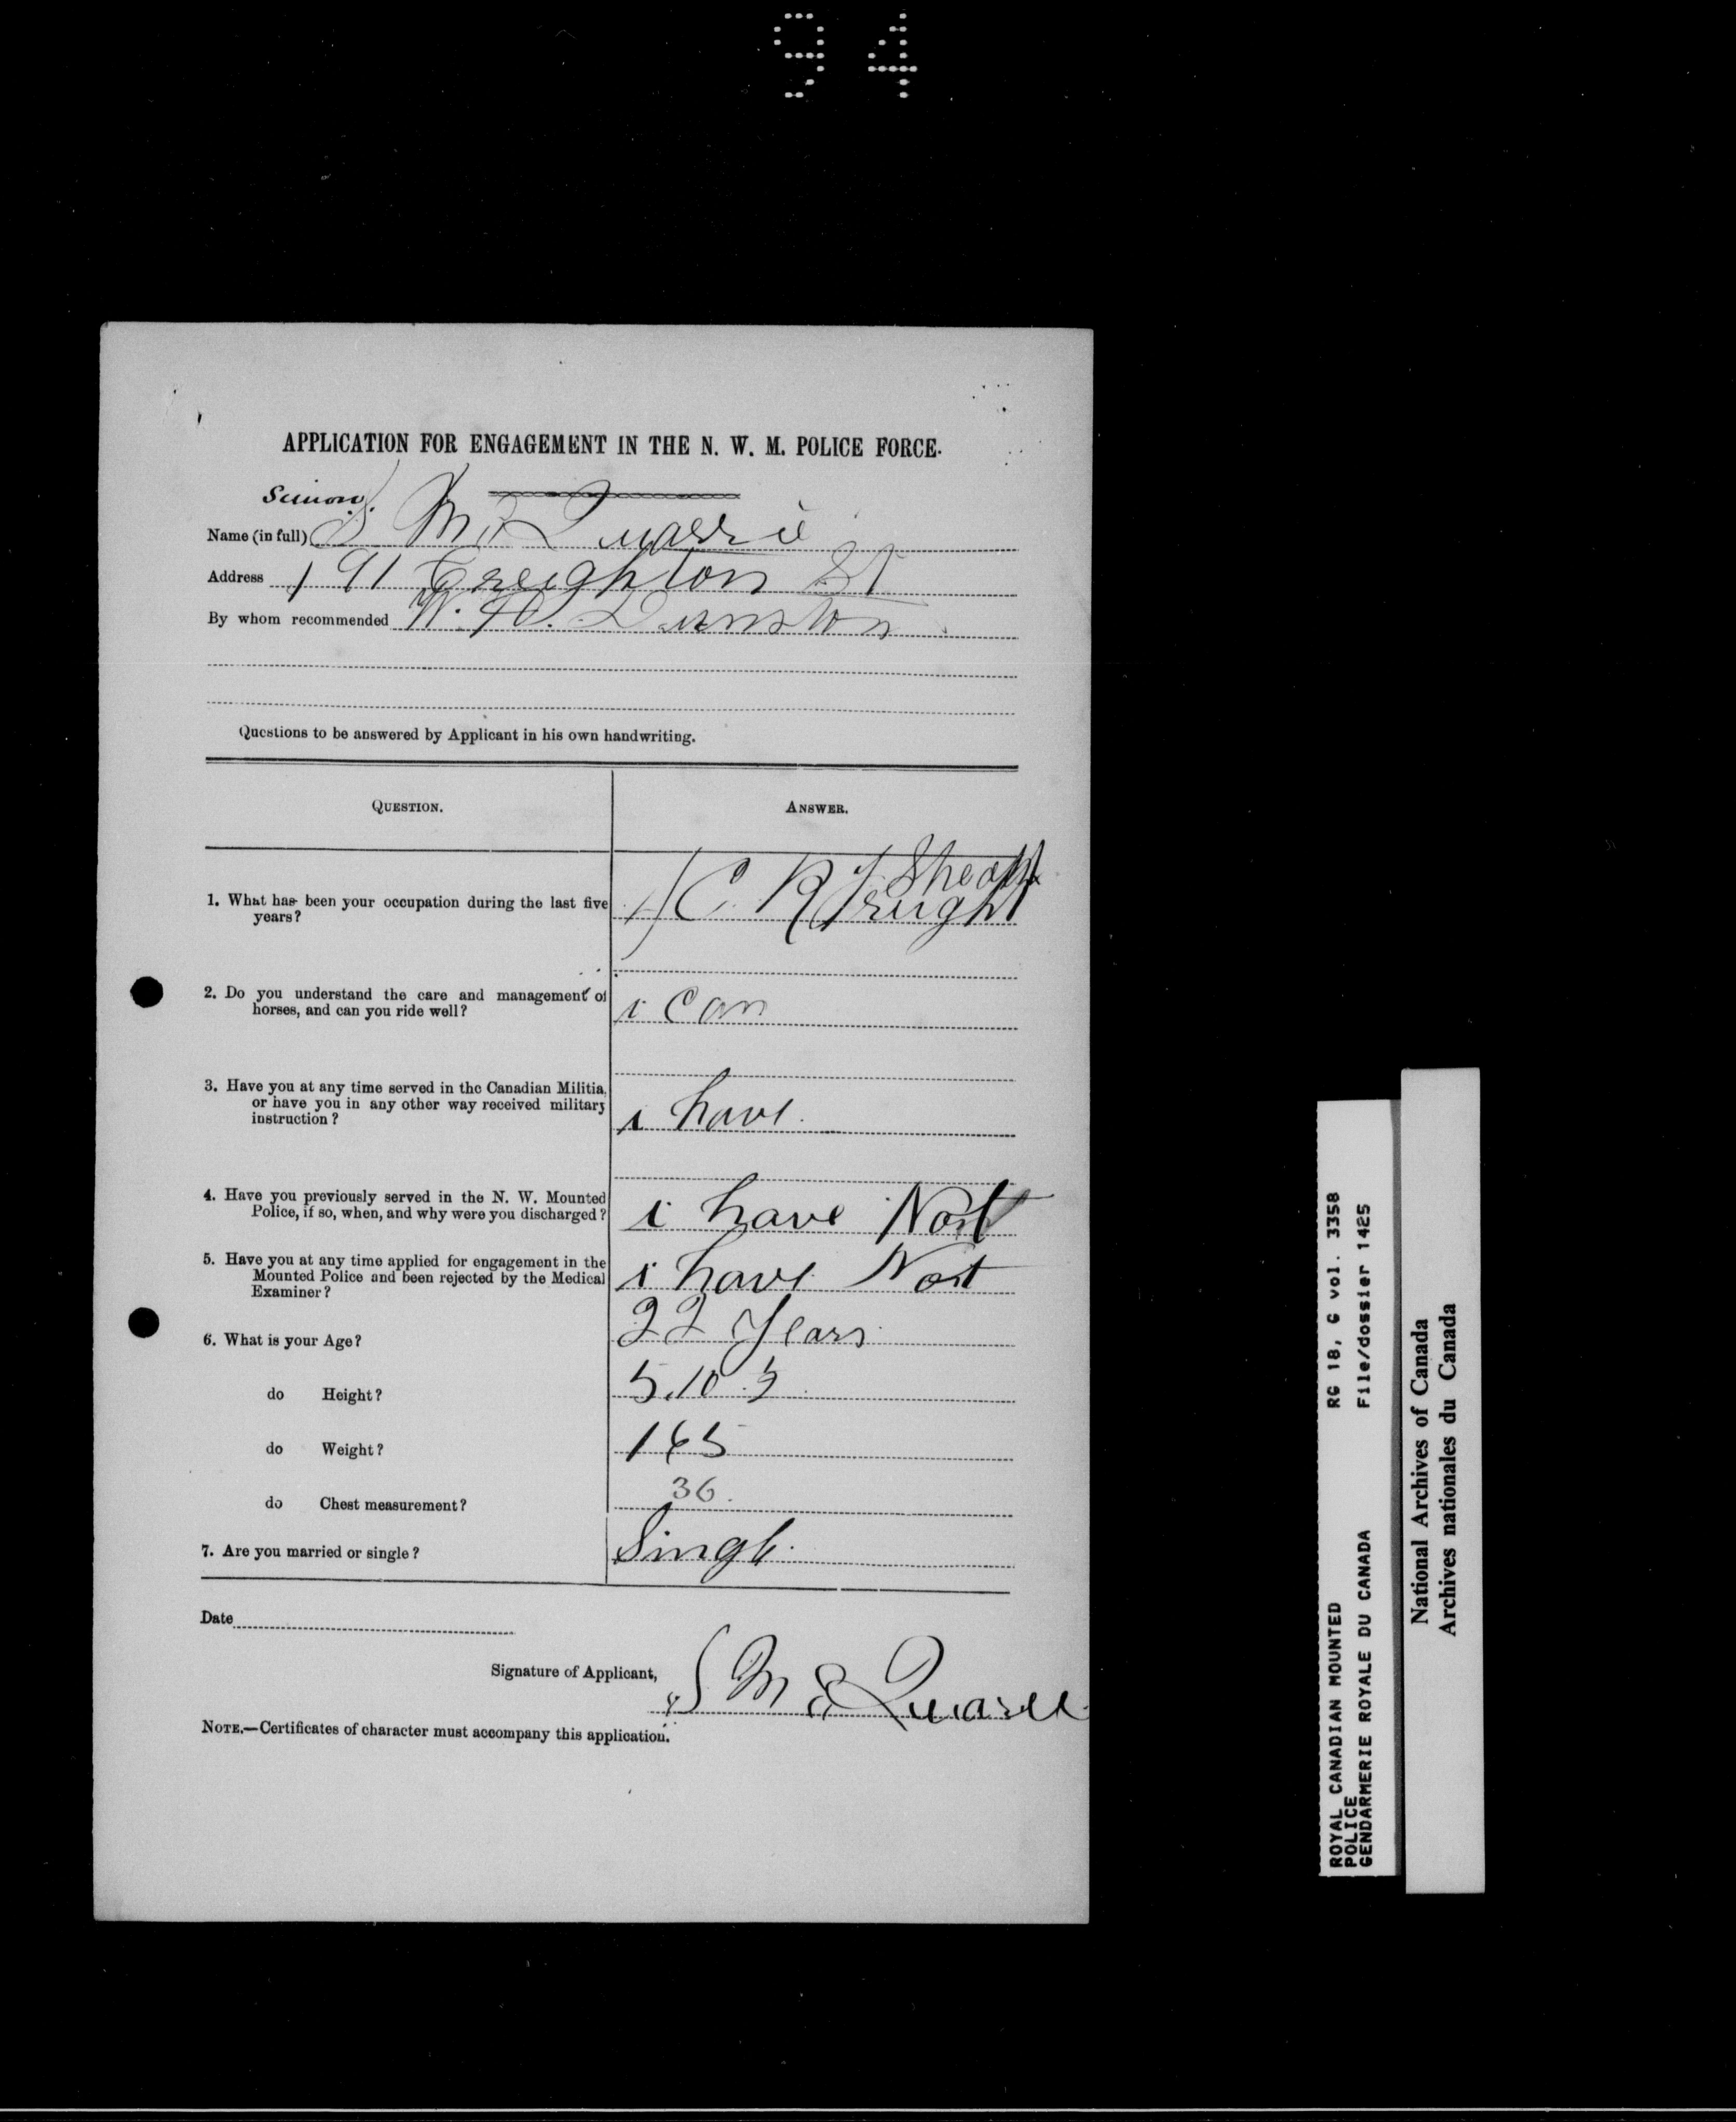 94
APPLICATION FOR ENGAGEMENT IN THE N. W. M. POLICE FORCE.
Simon
Name (in full) S. Mc Quarrie
Address 191 Creighton St
By whom recommended W. H. Dunston
Questions to be answered by Applicant in his own handwriting.
QUESTION. ANSWER.
1. What has been your occupation during the last five years? I C R Freight Shead
2. Do you understand the care and management of horses, and can you ride well? i can
3. Have you at any time served in the Canadian Militia, or have you in any other way received military instruction? i have.
4. Have you previously served in the N. W. Mounted Police, if so, when, and why were you discharged? i have Not
5. Have you at any time applied for engagement in the Mounted Police and been rejected by the Medical Examiner? i have Not
6. What is your Age? 22 Years
do Height? 5.10
do Weight? 165
do Chest measurement? 36.
7. Are you married or single? Single.
Date
Signature of Applicant, S Mc Quarrie
NOTE.—Certificates of character must accompany this application.
ROYAL CANADIAN MOUNTED RG 18, G vol. 3358
POLICE
GENDARMERIE ROYALE DU CANADA File/dossier 1425
National Archives of Canada
Archives nationales du Canada